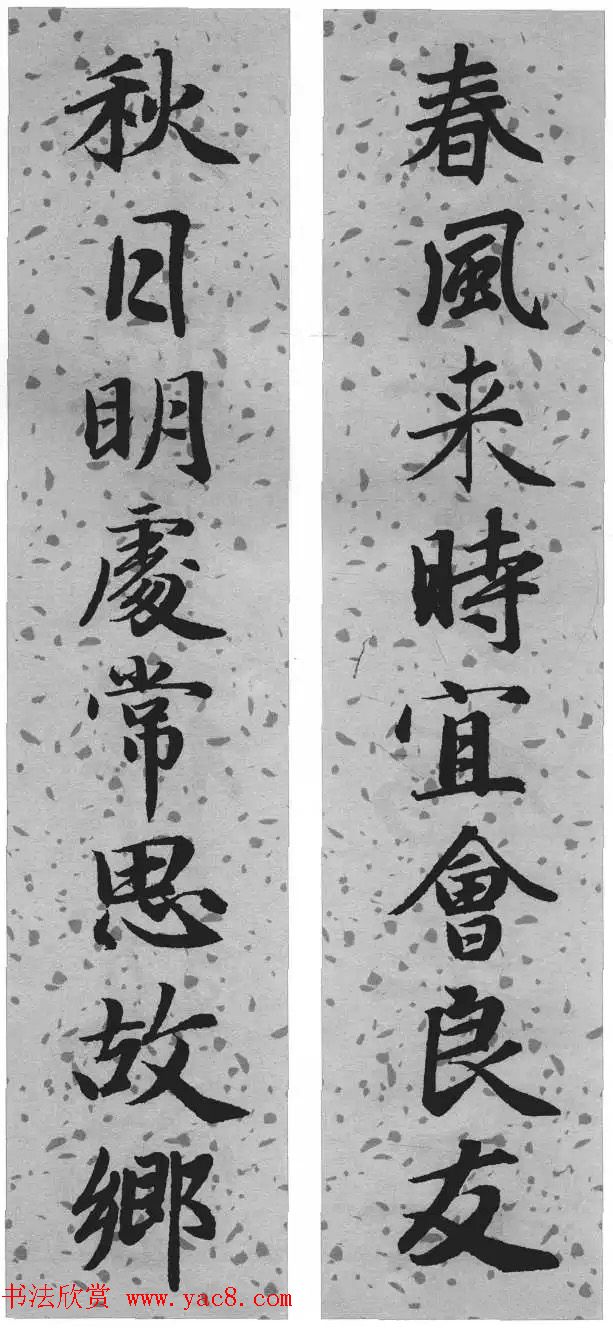 春風来時宜會良友
秋日明處常思故鄉
书法欣赏 www.yac8.com